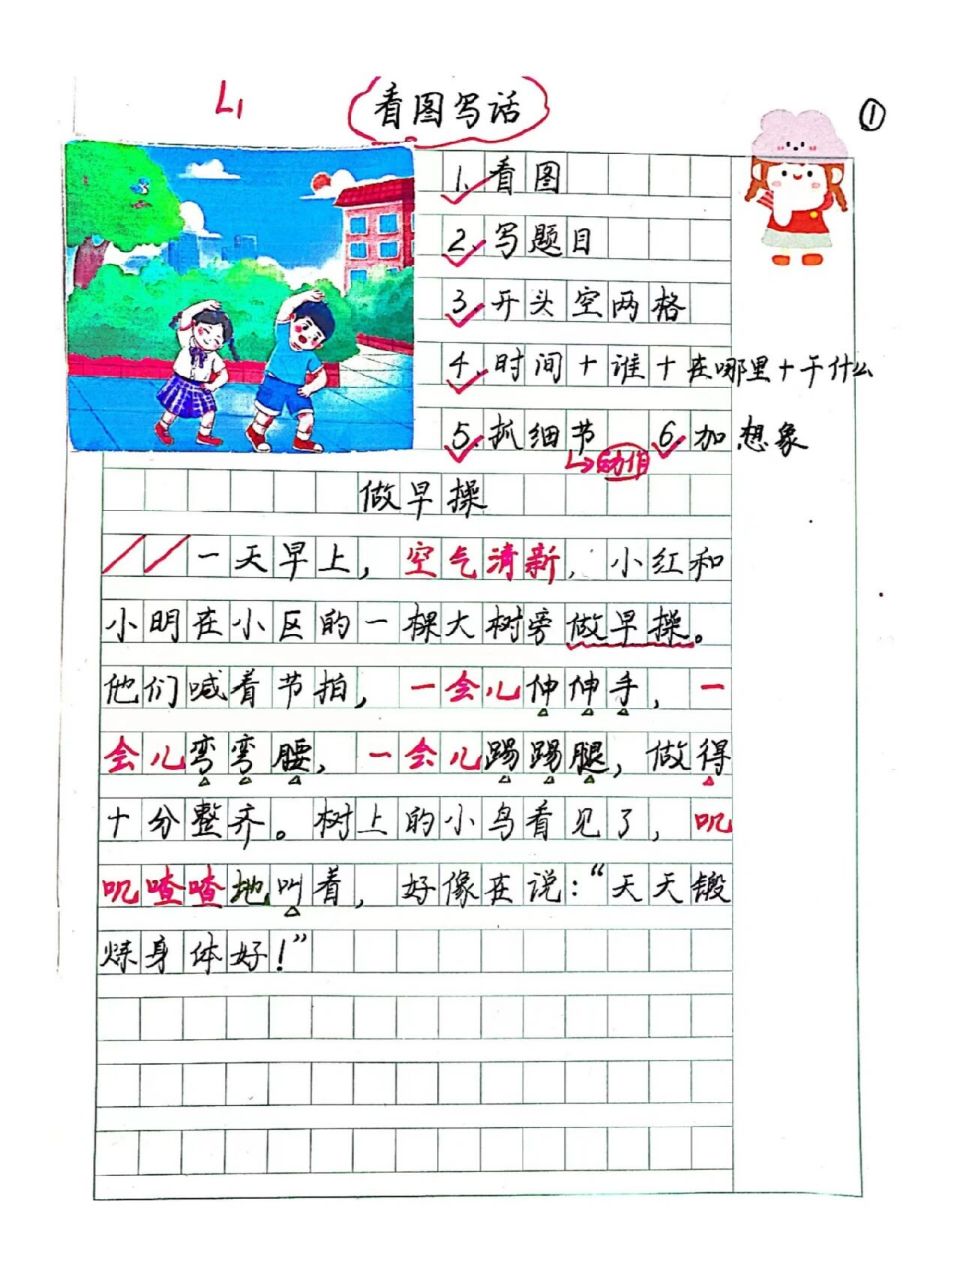 L1
看图写话
①
1. 看图
2. 写题目
3. 开头空两格
4. 时间+谁+在哪里+干什么
5. 抓细节 6. 加想象
↳动作
做早操
//一天早上，空气清新，小红和
小明在小区的一棵大树旁做早操。
他们喊着节拍，一会儿伸伸手，一
会儿弯弯腰，一会儿踢踢腿，做得
十分整齐。树上的小鸟看见了，叽
叽喳喳地叫着，好像在说：“天天锻
炼身体好！”